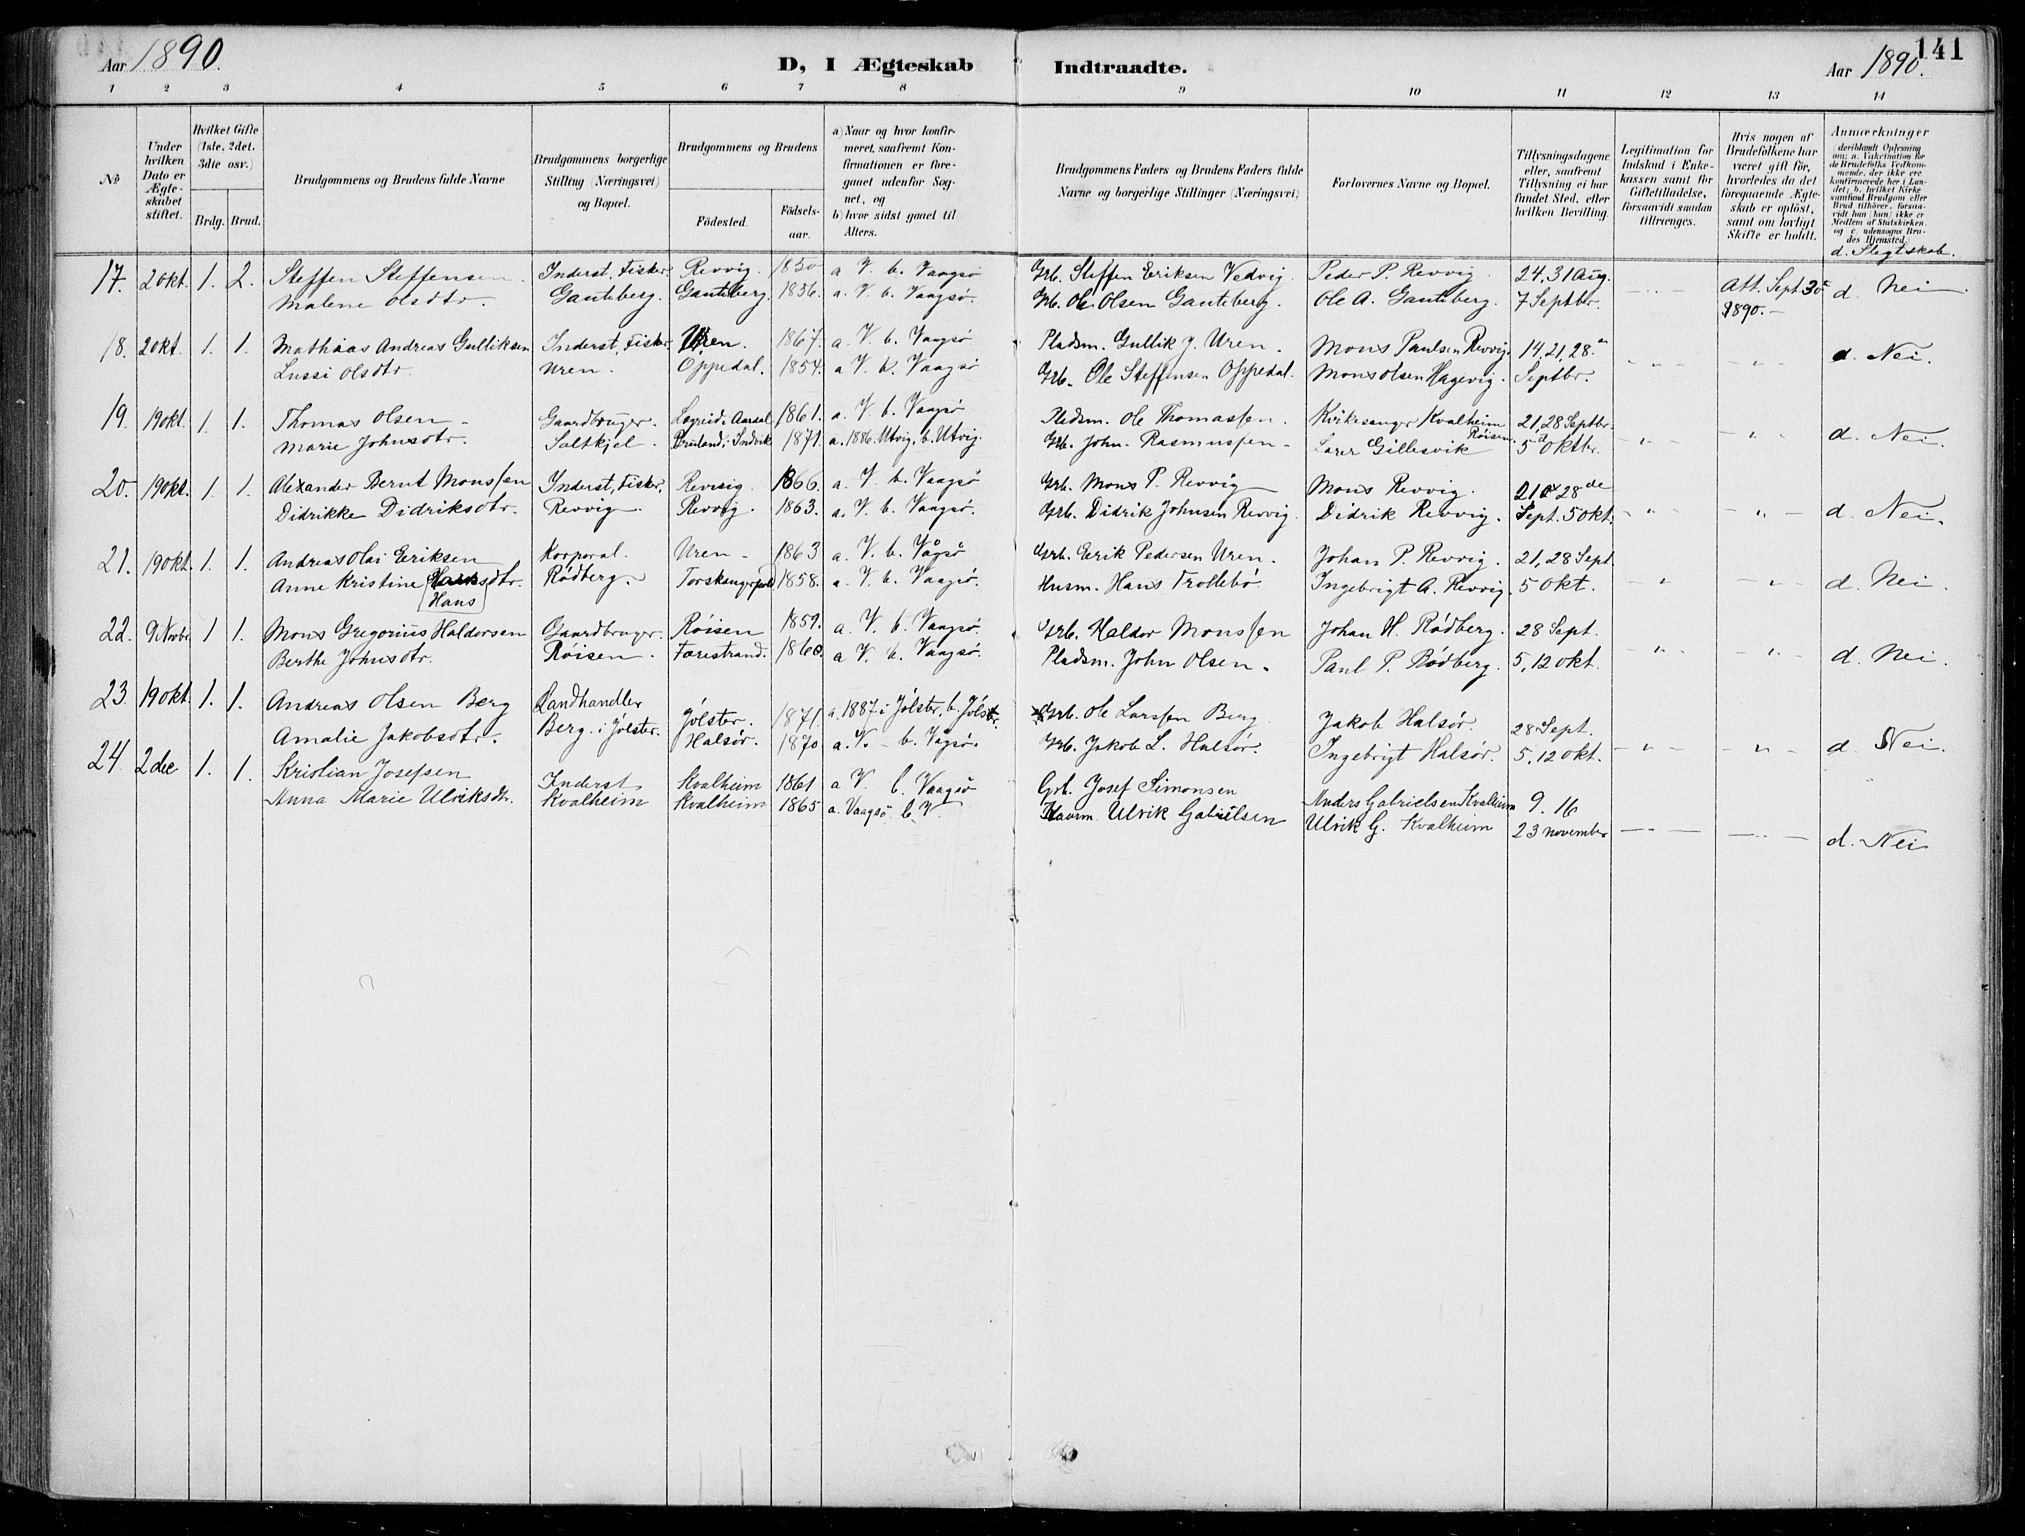 Aar 1890.
D, I Ægteskab Indtraadte.
Aar 1890.
141
1 2 3 4 5 6 7 8 9 10 11 12 13 14
No
Under hvilken Dato er Ægteskabet stiftet.
Hvilket Gifte (1ste, 2det, 3die osv.)
Brdg. Brud.
Brudgommens og Brudens fulde Navne
Brudgommens borgerlige Stilling (Næringsvei) og Bopæl.
Brudgommens og Brudens
Födested.
Födselsaar.
a) Naar og hvor konfirmeret, saafremt Konfirmationen er foregaaet udenfor Sognet, og
b) hvor sidst gaaet til Alters.
Brudgommens Faders og Brudens Faders fulde Navne og borgerlige Stillinger (Næringsvei)
Forlovernes Navne og Bopæl.
Tillysningsdagene eller, saafremt Tillysning ei har fundet Sted, efter hvilken Bevilling.
Legitimation for Indskud i Enkekassen samt for Giftetilladelse, forsaavidt saadan tiltrænges.
Hvis nogen af Brudefolkene har været gift för, hvorledes da det foregaaende Ægteskab er oplöst, samt om lovligt Skifte er holdt.
Anmærkninger (deriblandt Oplysning om: a. Vakcination for de Brudefolks Vedkommende, der ikke ere konfirmerede her i Landet; b. hvilket Kirkesamfund Brudgom eller Brud tilhörer, forsaavidt han (hun) ikke er Medlem af Statskirken, og c. udensogns Brudes Hjemsted.
d. Slegtskab.
17. 2 okt. 1. 2. Steffen Steffensen. Inderst, Fisker Revvig. 1850 a V. b. Vaagsö Grb. Steffen Eriksen Vedvig. Peder P. Revvig 24, 31 Aug. Att. Sept 30 d. Nei.
Malene Olsdtr. Gauteberg. Gauteberg. 1836. a. V. b. Vaagsö. Grb. Ole Olsen Gauteberg. Ole A. Gauteberg. 7 Septbr. 1890.-
18. 2 okt. 1. 1. Mathias Andreas Gulliksen Inderst, Fisker, Uren. 1867. a. V. b. Vaagsö Pladsm. Gullik J. Uren. Mons Paulsen Revvig. 14, 21, 28. d. Nei.
Lussi Olsdtr. Uren. Oppedal. 1854. a V. b. Vaagsö Grb. Ole Steffensen Oppedal. Mons Olsen Hagevig. Septbr.
19. 19 okt. 1. 1. Thomas Olsen Gaardbruger. Løgreid i Aardal 1861. a. V. b. Vaagsö Pladsm. Ole Thomassen. Kirkesanger Kvalheim Röisen 21, 28 Septbr. d. Nei.
Marie Johnsdtr. Saltkjel. i Indvik 1871. a. 1886 Utvig, b. Utvig. Grb. John Rasmussen Lærer Gillesvik 5 Oktbr.
20. 19 okt. 1. 1. Alexander Bernt Monssen Inderst, Fisker, Revvig. 1866. a. V. b. Vaagsö Grb. Mons P. Revvig Mons Revvig. 21 28de d. Nei.
Didrikke Didriksdtr. Revvig. Revvig. 1863. a. V. b. Vaagsö. Grb. Didrik Johnsen Revvig. Didrik Revvig. Sept. 5 okt.
21. 19 okt. 1. 1. Andreas Olai Eriksen Korporal. Uren 1863 a. V. b. Vågsö Grb. Erik Pedersen Uren. Johan P. Revvig. 21, 28 Sept. d. Nei.
Anne Kristine Hansdtr. (Hans) Rödberg. 1858. a. V. b. Vaagsö. Husm. Hans Trollebö. Ingebrigt A. Revvig. 5 okt.
22. 9 Novbr. 1 1. Mons Gregorius Haldorsen Gaardbruger. Röisen 1859. a. V. b. Vaagsö. Grb. Haldor Monssen Johan H. Rödberg. 28 Sept. d. Nei.
Berthe Johnsdtr. Röisen. Færestrand. 1860. a V. b. Vaagsö. Pladsm. John Olsen. Paul P. Rödberg. 5, 12 okt.
23. 19 okt. 1. 1. Andreas Olsen Berg Landhandler Jölster. 1871. a. 1887 i Jölster, b. Jölster. Grb. Ole Larssen Berg Jakob Halsör. 28 Sept. d. Nei.
Amalie Jakobsdtr. Berg i Jölster. Halsör. 1870 a. V. b. Vågsö. Grb. Jakob L. Halsör. Ingebrigt Halsör. 5, 12 okt.
24. 2 dec 1. 1. Kristian Josefsen Inderst Kvalheim 1861 a V. b. Vaagsö Grb. Josef Simonsen Anders Gabrielsen Kvalheim 9. 16 d. Nei
Anna Marie Ulriksdtr. Kvalheim Kvalheim 1865 a. Vaagsö b V. Ulrik Gabrielsen Ulrik G. Kvalheim 23 november